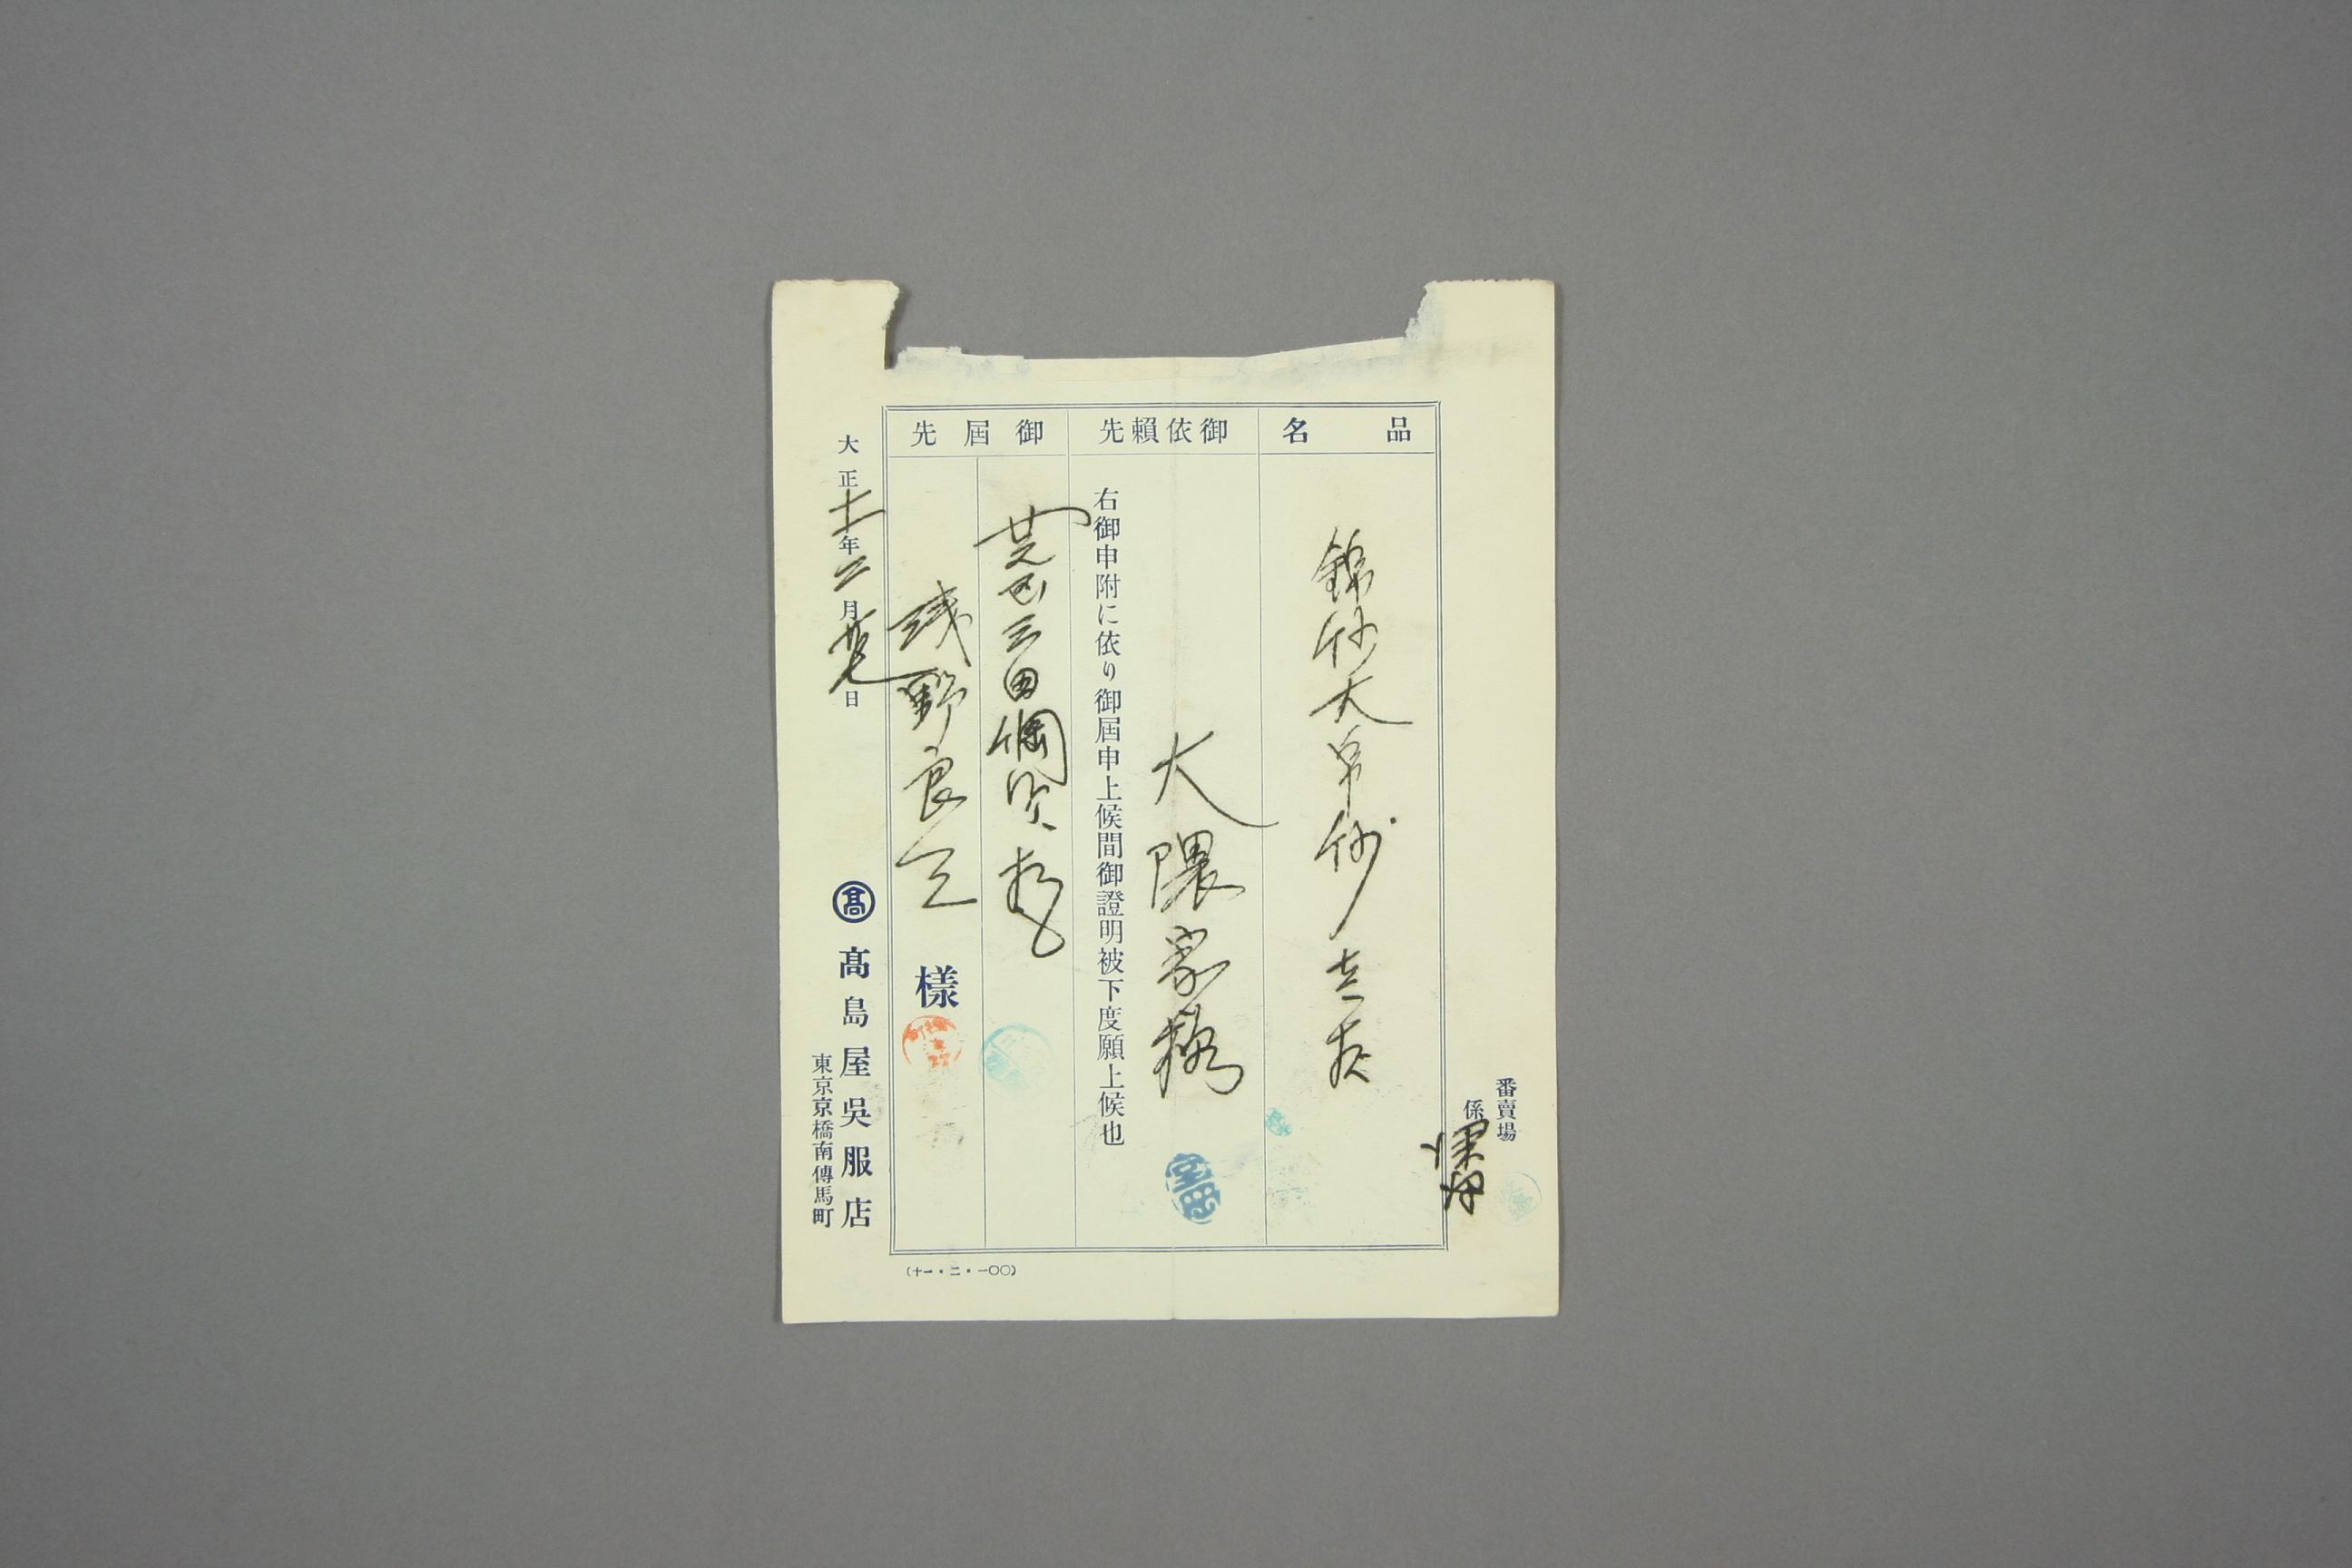 番賣場
係
品名
錦紗大帛紗 壱表
御依賴先
大隈家様
右御申附に依り御屆申上候間御證明被下度願上候也
御屆先
芝区三田綱町
浅野良三
樣
大正十一年二月廿九日
髙 髙島屋吳服店
東京京橋南傳馬町
(十一・二・一〇〇)